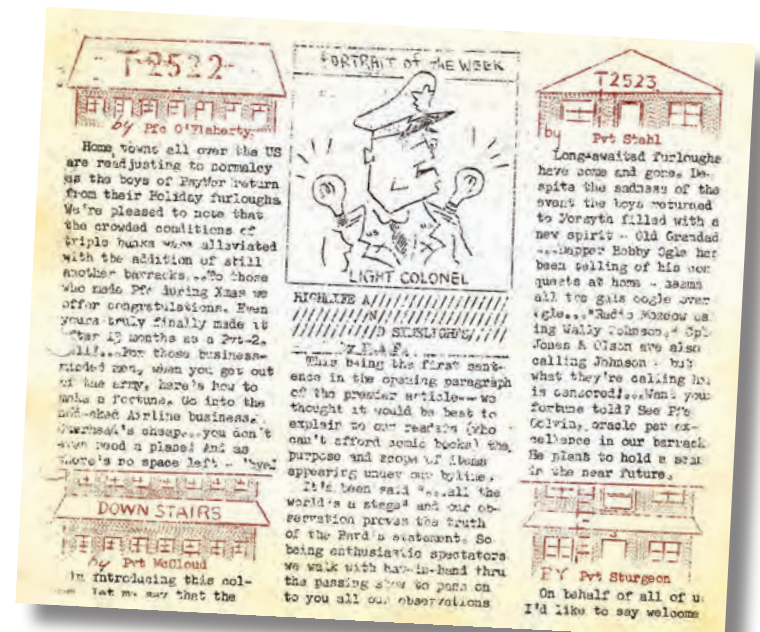 T-2522
by Pfc O'Flaherty
Home towns all over the US
are readjusting to normalcy
as the boys of PsyWor return
from their Holiday furloughs
We're pleased to note that
the crowded conditions of
triple bunks were alleviated
with the addition of still
another barracks...To those
who made Pfc during Xmas we
offer congratulations. Even
yours truly finally made it
after 13 months as a Pvt-2.
...For those business-
minded men, when you get out
of the army, here's how to
make a fortune. Go into the
Airline business.
Overhead's cheap...you don't
even need a plane! And as
there's no space left - 'bye!
DOWN STAIRS
by Pvt McCloud
In introducing this col-
let me say that the
PORTRAIT of the WEEK
LIGHT COLONEL
HIGHLIFE A/////////////
////////////N/////////
////////////D SIDELIGHTS////
by
This being the first sent-
ence in the opening paragraph
of the premier article--we
thought it would be best to
explain to our readers (who
can't afford comic books) the
purpose and scope of items
appearing under our byline.
It's been said "...all the
world's a stage" and our ob-
servation proves the truth
of the Bard's statement. So
being enthusiastic spectators
we walk with hat-in-hand thru
the passing show to pass on
to you all our observations
T2523
by Pvt Stahl
Long-awaited furloughs
have come and gone. De-
spite the sadness of the
event the boys returned
to Forsyth filled with a
new spirit - Old Grandad
...Dapper Bobby Ogle has
been telling of his con
quests at home - seems
all the gals oogle over
Ogle..."Radio Moscow ca
ing Wally Johnson." Cpl
Jones & Olson are also
calling Johnson - but
what they're calling hi
is censored!...Want your
fortune told? See Pfc
Colvin, oracle par ex-
cellence in our barrack
He plans to hold a sean
in the near future.
BY Pvt Sturgeon
On behalf of all of u
I'd like to say welcome